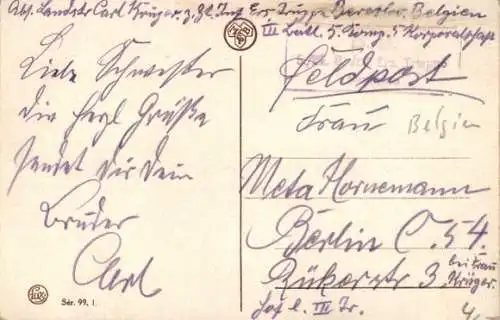 Abs. Landstr. Carl Krüger. z. Zt. Inf. Ers. Trupp. Beverloo, Belgien
III Batl. 5. Komp. 5 Korporalschaft
Feldpost
Frau
Belgien
Liebe Schwester
Die herzl Grüße
sendet Dir Dein
Bruder
Carl
Meta Hornemann
Berlin C. 54.
Rükerstr 3
bei Frau
Krüger.
Hof l. III Tr.
Sér. 99. 1.